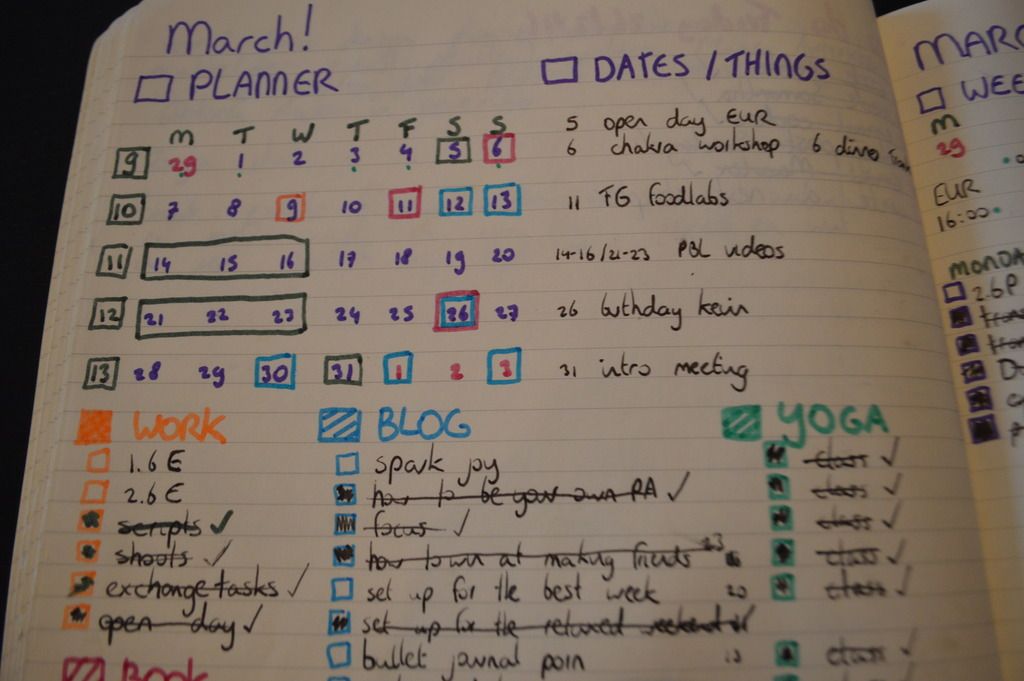 March!
PLANNER
M T W T F S S
9 29 1 2 3 4 5 6
10 7 8 9 10 11 12 13
11 14 15 16 17 18 19 20
12 21 22 23 24 25 26 27
13 28 29 30 31 1 2 3
DATES / THINGS
5 open day EUR
6 chakra workshop 6 dinner
11 FG foodlabs
14-16/21-23 PBL videos
26 birthday kevin
31 intro meeting
WORK
1.6 E
2.6 E
scripts ✓
shoots ✓
exchange tasks ✓
open day ✓
Book
BLOG
spark joy
how to be your own PA ✓
focus ✓
how to win at making friends 23
set up for the best week 20
set up for the relaxed weekend ✓
bullet journal porn 13
YOGA
class ✓
class ✓
class ✓
class ✓
class ✓
class ✓
MARC
WEE
M
29
EUR
16:00
MONDA
2.6P